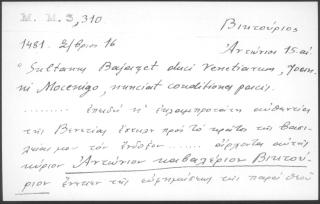 M. M. 3, 310 Βικτούριος
1481. 2/βριο 16 Ἀντώνιος 15. αἰ.
"Sultanus Bajazet duci Venetiarum, Joan-
ni Mocenigo, nunciat conditiones pacis.
......... ἐπειδὴ ἡ ἐκλαμπροτάτη αὐθεντία
τῆς Βενετίας ἔστειλεν πρὸς τὸ κράτος τῆς βασι-
λείας μου τὸν ἔνδοξον ...... ἄρχοντα αὐτῆς
κύριον Ἀντώνιον καβαλιέριον Βικτού-
ριον ἕνεκεν τῆς τῆς παρὰ θεοῦ